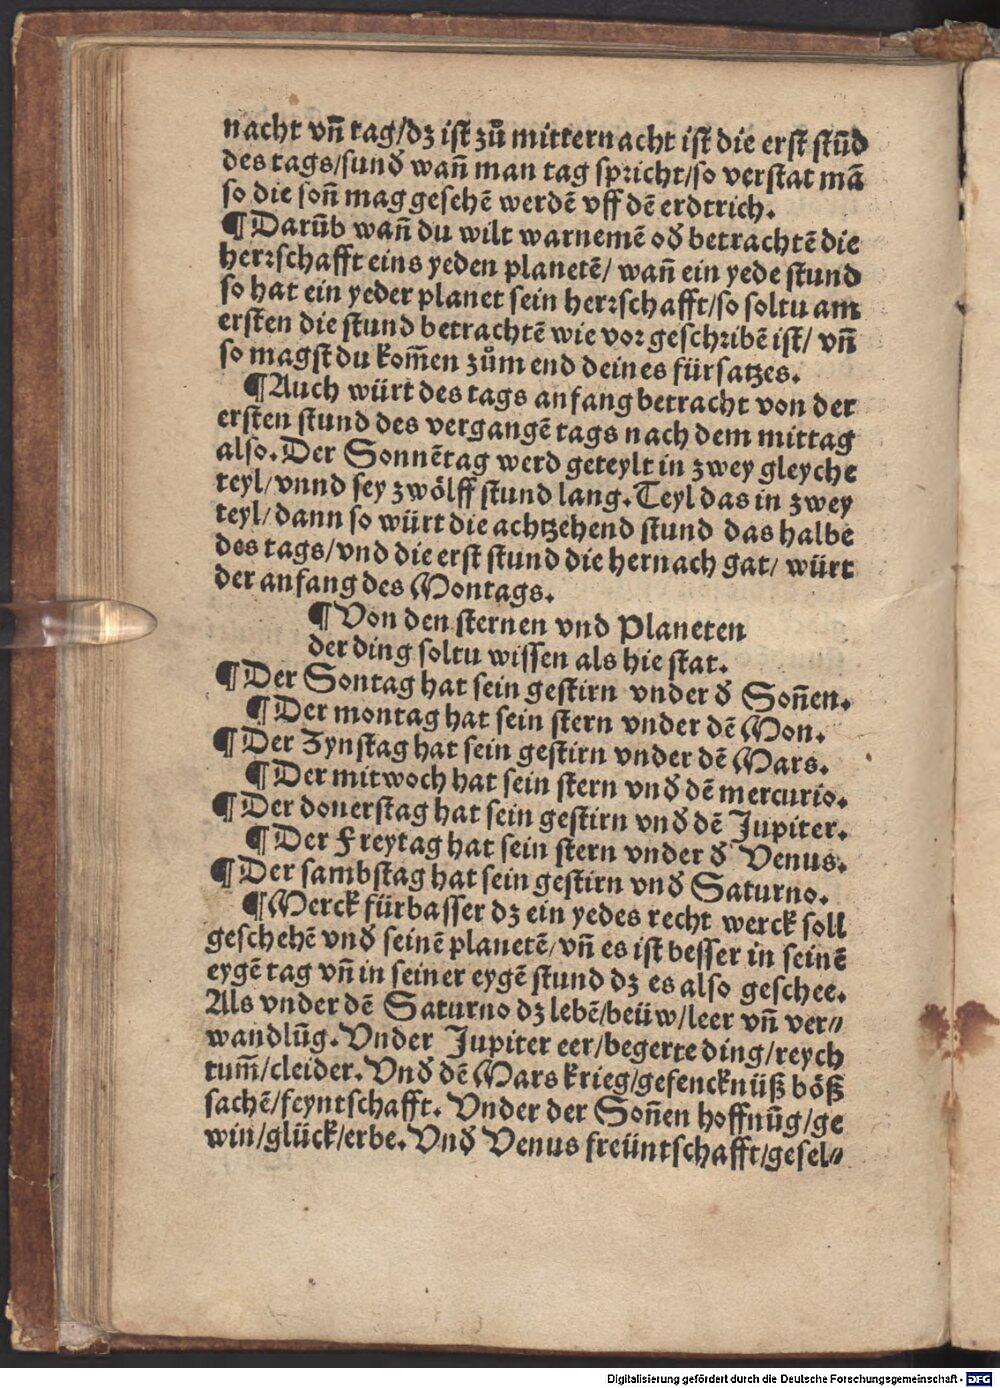 nacht vñ tag/dz ist zuͦ mitternacht ist die erst stũd
des tags/sunđ wañ man tag spricht/so verstat mã
so die soñ mag gesehẽ werdẽ vff dẽ erdtrich.
¶ Darũb wañ du wilt warnemẽ ođ betrachtẽ die
herrschafft eins yeden planetẽ/ wañ ein yede stund
so hat ein yeder planet sein herrschafft/so soltu am
ersten die stund betrachtẽ wie vor geschribẽ ist/ vñ
so magst du kom̃en zuͦm end deines fürsatzes.
¶ Auch würt des tags anfang betracht von der
ersten stund des vergangẽ tags nach dem mittag
also. Der Sonnẽtag werd geteylt in zwey gleyche
teyl/vnnd sey zwölff stund lang. Teyl das in zwey
teyl/dann so würt die achtzehend stund das halbe
des tags/vnd die erst stund die hernach gat/ würt
der anfang des Montags.
¶ Von den sternen vnd Planeten
der ding soltu wissen als hie stat.
¶ Der Sontag hat sein gestirn vnder đ Soñen.
¶ Der montag hat sein stern vnder dẽ Mon.
¶ Der Zynstag hat sein gestirn vnder dẽ Mars.
¶ Der mitwoch hat sein stern vnđ dẽ mercurio.
¶ Der donerstag hat sein gestirn vnđ dẽ Jupiter.
¶ Der Freytag hat sein stern vnder đ Venus.
¶ Der sambstag hat sein gestirn vnđ Saturno.
¶ Merck fürbasser dz ein yedes recht werck soll
geschehẽ vnđ seinẽ planetẽ/vñ es ist besser in seinẽ
eygẽ tag vñ in seiner eygẽ stund dz es also geschee.
Als vnder dẽ Saturno dz lebẽ/beüw/leer vñ ver⸗
wandlũg. Vnder Jupiter eer/begerte ding/reych
tum̃/cleider. Vnđ dẽ Mars krieg/gefencknüß böß
sachẽ/feyntschafft. Vnder der Soñen hoffnũg/ge
win/glück/erbe. Vnđ Venus freüntschafft/gesel⸗
Digitalisierung gefördert durch die Deutsche Forschungsgemeinschaft - DFG